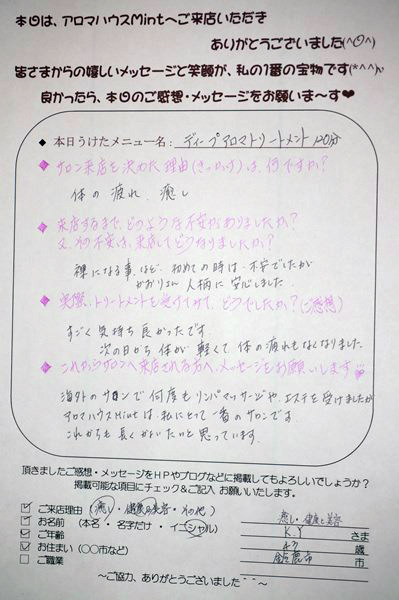 本日は、アロマハウスMintへご来店いただき
ありがとうございました(^O^)
皆さまからの嬉しいメッセージと笑顔が、私の1番の宝物です(*^^*)
良かったら、本日のご感想・メッセージをお願いま〜す♥
◆ 本日うけたメニュー名: ディープアロマトリートメント 120分
◆ サロン来店を決めた理由(きっかけ)は、何ですか?
体の疲れ、癒し
◆ 来店するまで、どのような不安がありましたか?
又、その不安は、来店してどうなりましたか?
裸になる事、など、初めての時は、不安でしたが
かおりさん 人柄に安心しました。
◆ 実際、トリートメントを受けてみて、どうでしたか?(ご感想)
すごく気持ち良かったです。
次の日から体が軽くて、体の疲れもなくなりました。
◆ これからサロンへ来店される方へ、メッセージをお願いします♡
海外のサロンで何度もリンパマッサージや、エステを受けましたが
アロマハウスMintは、私にとって一番のサロンです。
これからも長くかよいたいと思っています。
頂きましたご感想・メッセージをHPやブログなどに掲載してもよろしいでしょうか?
掲載可能な項目にチェック&ご記入 お願いいたします。
☑ ご来店理由 (癒し・健康と美容・その他) 癒し・健康と美容
☑ お名前 (本名・名字だけ・イニシャル) K.Y さま
☑ ご年齢 歳
☑ お住まい (〇〇市など) 鈴鹿市 市
☐ ご職業
〜ご協力、ありがとうございました〜